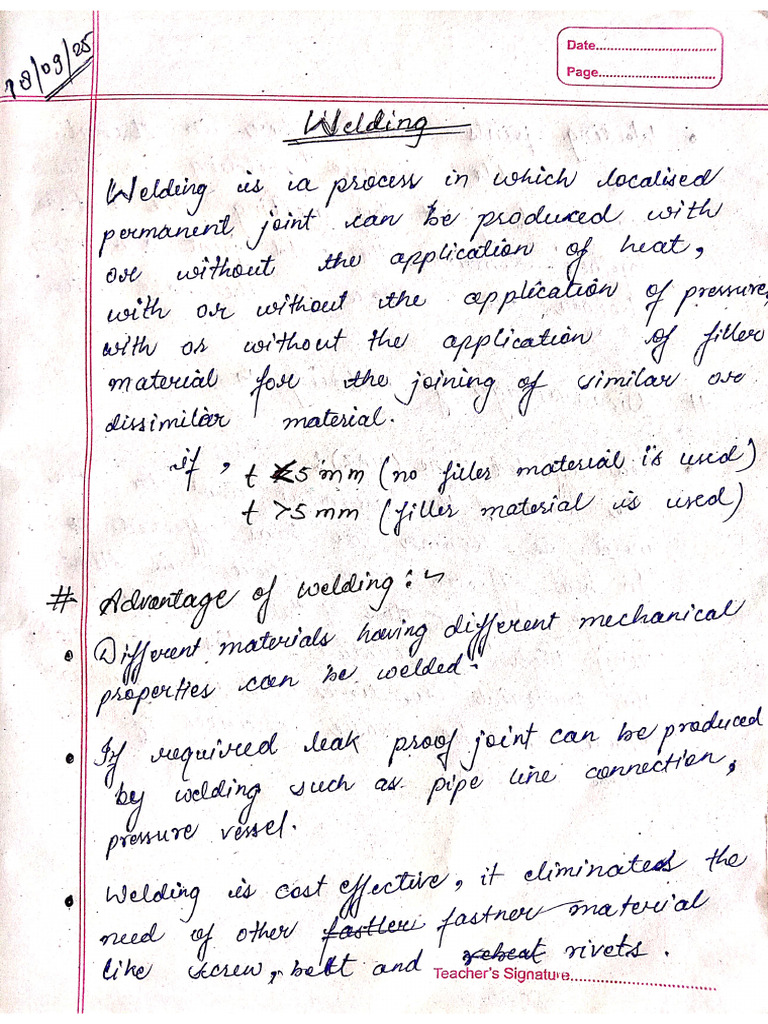 18/09/25
Date..............................
Page..............................
Welding
Welding is a process in which localised
permanent joint can be produced with
or without the application of heat,
with or without the application of pressure,
with or without the application of filler
material for the joining of similar or
dissimilar material.
if, t <5 mm (no filler material is used)
t >5 mm (filler material is used)
# Advantage of welding:-
• Different materials having different mechanical
properties can be welded.
• If required leak proof joint can be produced
by welding such as pipe line connection,
pressure vessel.
• Welding is cost effective, it eliminates the
need of other fastner material
like screw, bolt and rivets.
Teacher's Signature..............................